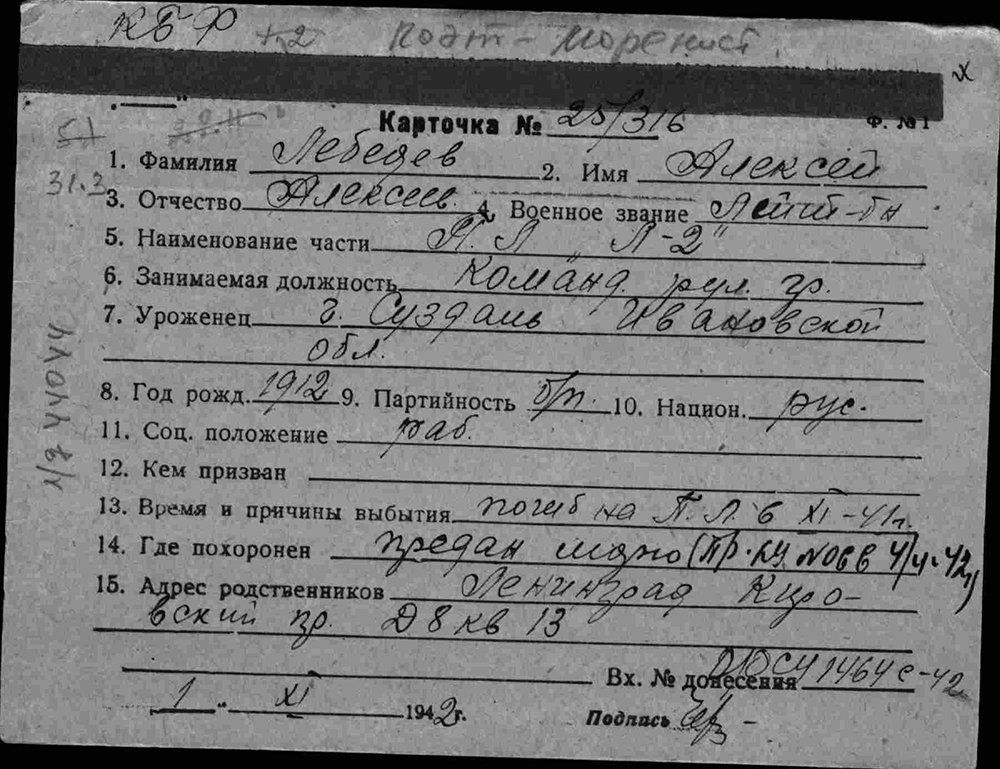 КБФ +2 Поэт-Моренист.
х
Карточка № 25/316 Ф. №1
51
31.3
1. Фамилия Лебедев 2. Имя Алексей
3. Отчество Алексеев. 4. Военное звание Лейт-т
5. Наименование части П.Л „Л-2"
6. Занимаемая должность Команд. рул. гр.
7. Уроженец г. Суздаль Ивановской
обл.
8. Год рожд. 1912 9. Партийность б/п. 10. Национ. рус.
11. Соц. положение раб.
12. Кем призван
13. Время и причины выбытия погиб на П.Л. в XI-41г.
14. Где похоронен предан морю (Пр. 42г)
15. Адрес родственников Ленинград Киро-
вский пр. Д 8 кв 13
Вх. № донесения 1464с-42
1 „ XI 1942г. Подпись